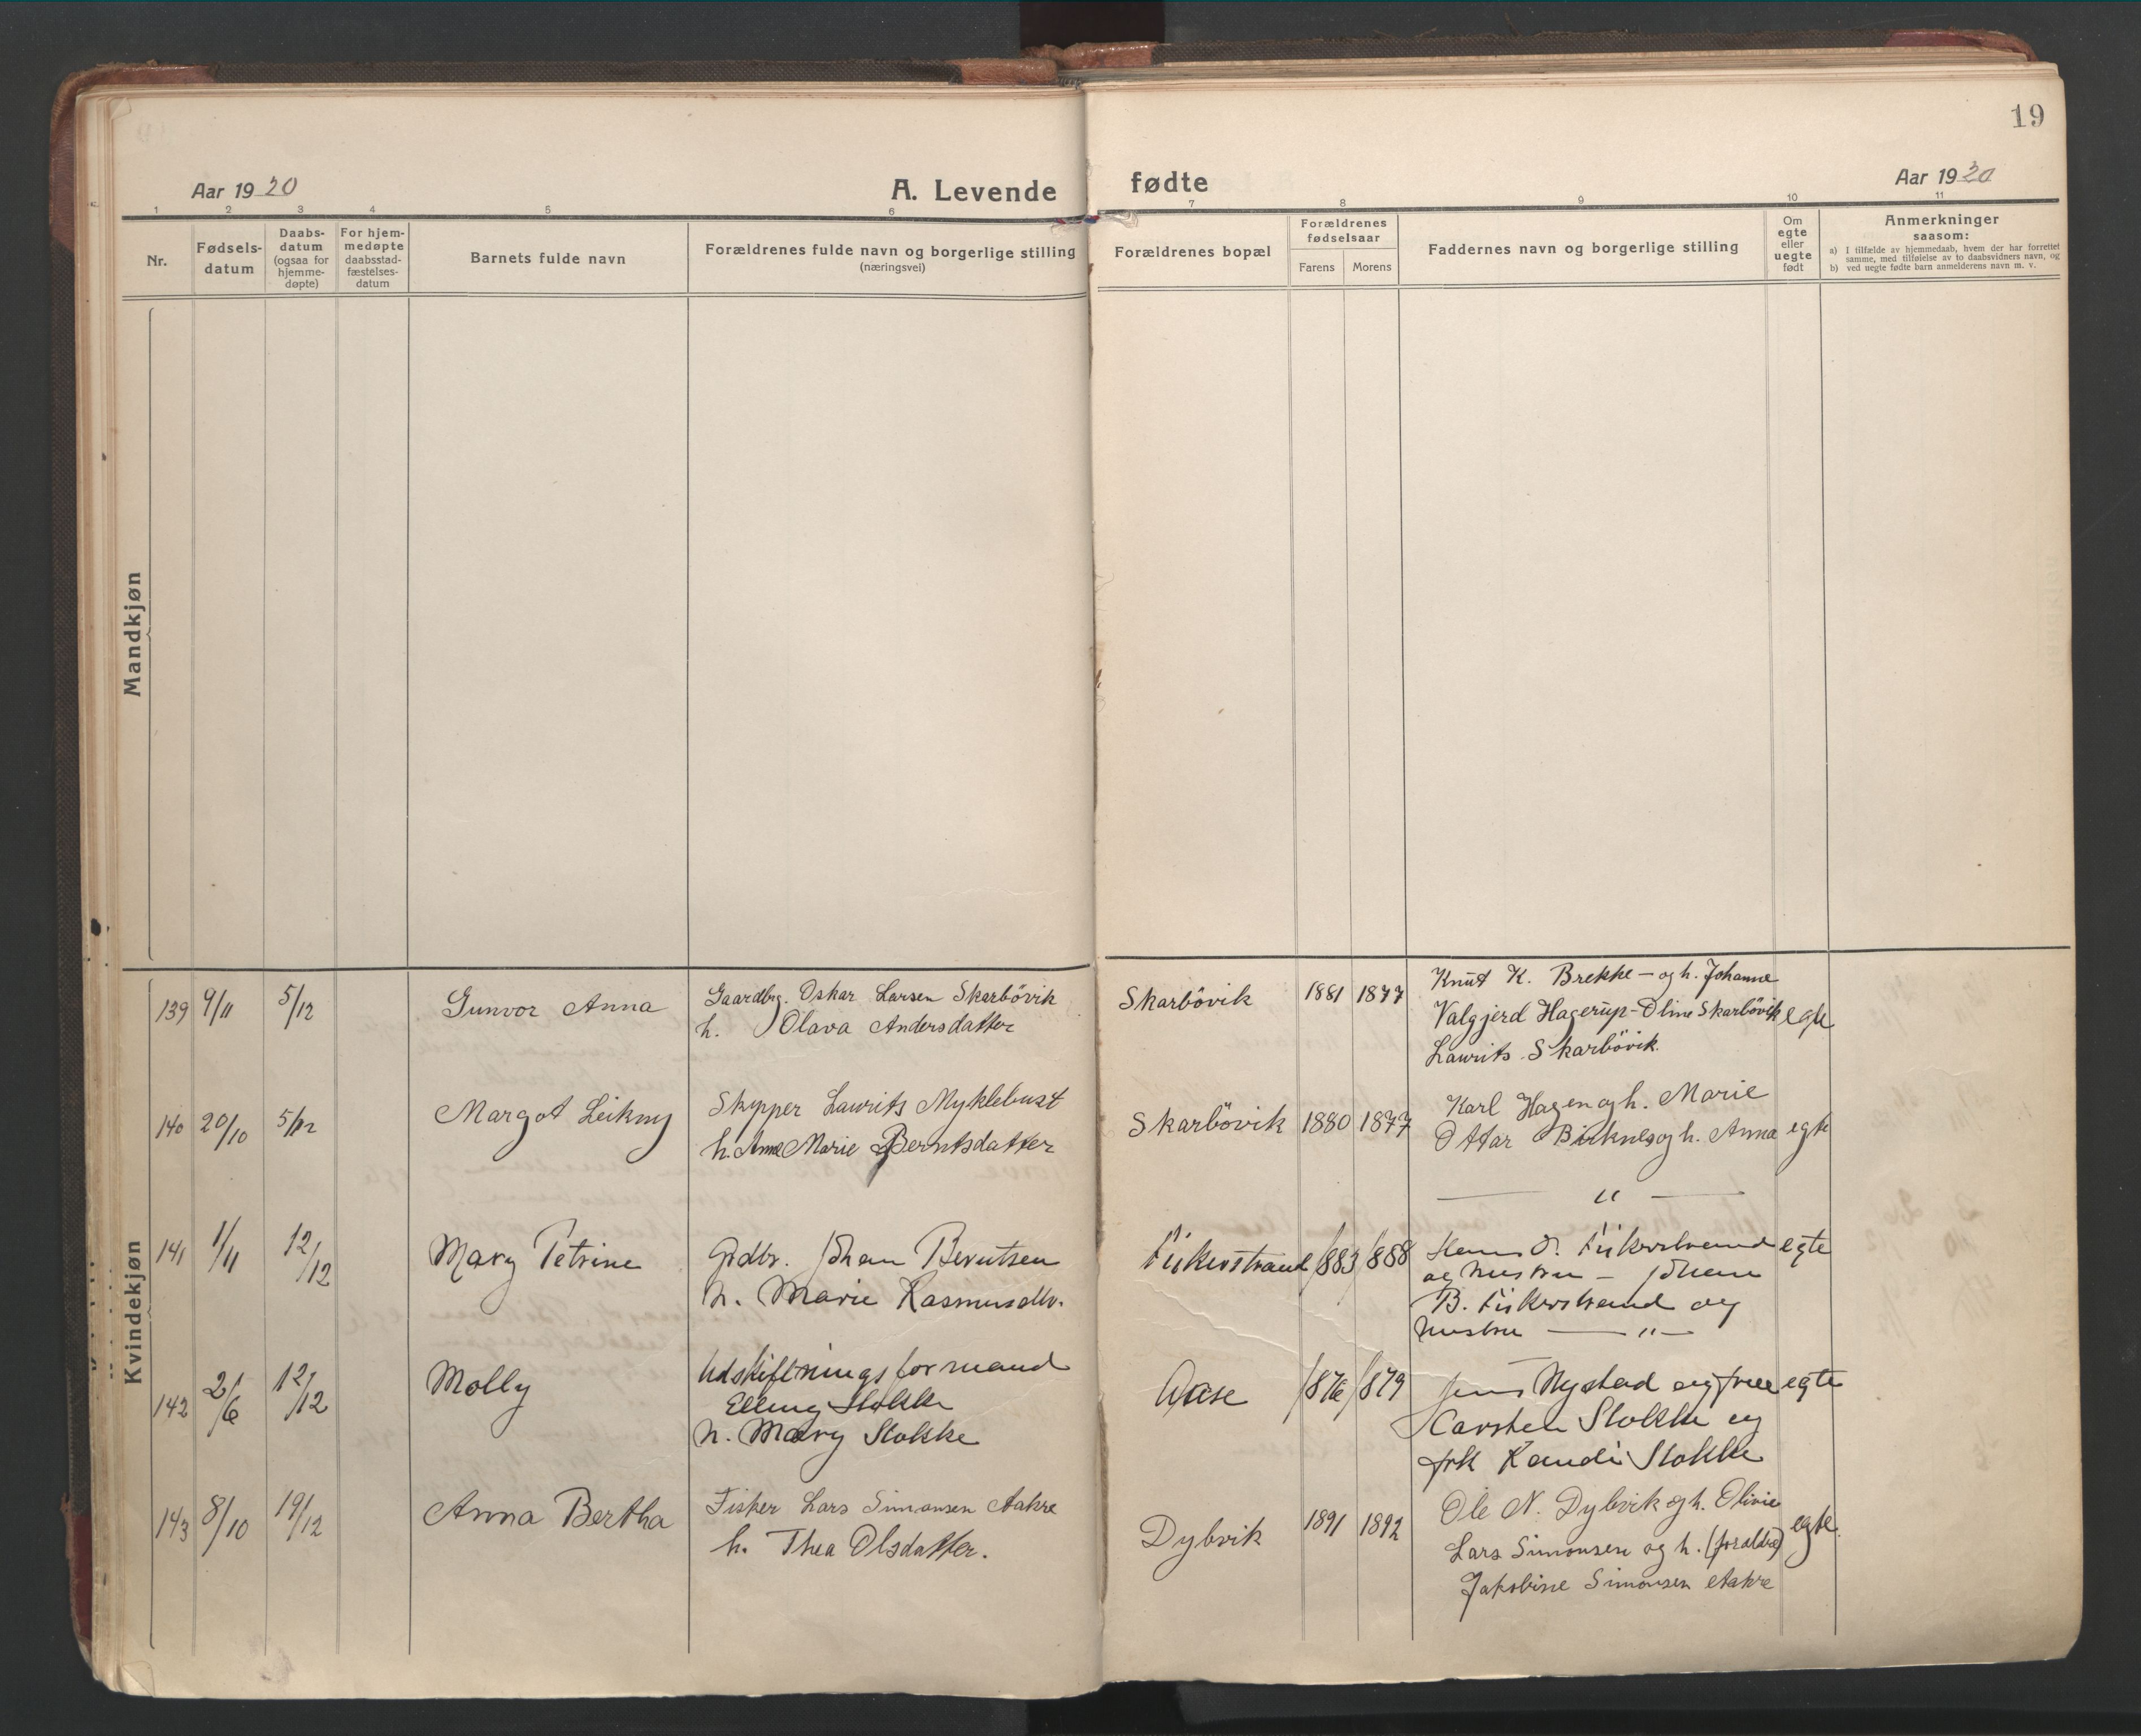 19
Aar 1920
A. Levende
fødte
Aar 1920
1 2 3 4 5 6 7 8 9 10 11
Nr.
Fødsels-
datum
Daabs-
datum
(ogsaa for
hjemme-
døpte)
For hjem-
medøpte
daabsstad-
fæstelses-
datum
Barnets fulde navn
Forældrenes fulde navn og borgerlige stilling
(næringsvei)
Forældrenes bopæl
Forældrenes
fødselsaar
Farens Morens
Faddernes navn og borgerlige stilling
Om
egte
eller
uegte
født
Anmerkninger
saasom:
a) I tilfælde av hjemmedaab, hvem der har forrettet
samme, med tilføielse av to daabsvidners navn, og
b) ved uegte fødte barn anmelderens navn m. v.
Mandkjøn
Kvindekjøn
139 9/11 5/12
Gunvor Anna
Gaardbrg. Oskar Larsen Skarbövik
h. Olava Andersdatter
Skarbövik 1881 1877
Knut K. Brekke - og h. Johanne
Valgjerd Hagerup - Oline Skarbövik
Laurits Skarbövik.
egte
140 20/10 5/12
Margot Leikny
Skipper Laurits Myklebust
h. Anne Marie Berntsdatter
Skarbövik 1880 1877
Karl Hagen og h. Marie
Ottar Birknes og h. Anna
— " —
egte
141 1/11 12/12
Mary Petrine
Grdbr. Johan Berntsen
h. Marie Rasmusdtr.
Fiskerstrand 1883 1888
Hans O. Fiskerstrand
og hustru - Johan
B. Fiskerstrand og
hustru — " —
egte
142 2/6 12/12
Molly
Udskiftningsformand
Elling Stokke
h. Mary Stokke
Aase 1876 1879
Jens Nystad og frue
Karsten Stokke og
frk Randi Stokke
egte
143 8/10 19/12
Anna Bertha
Fisker Lars Simonsen Aakre
h. Thea Olsdatter.
Dybvik 1891 1892
Ole N. Dybvik og h. Olivie
Lars Simonsen og h. (foraldre)
Jakobine Simonsen Aakre
egte.